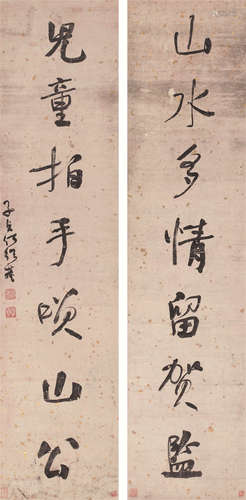 山水多情留贺監
兒童拍手唤山公
子貞何绍基